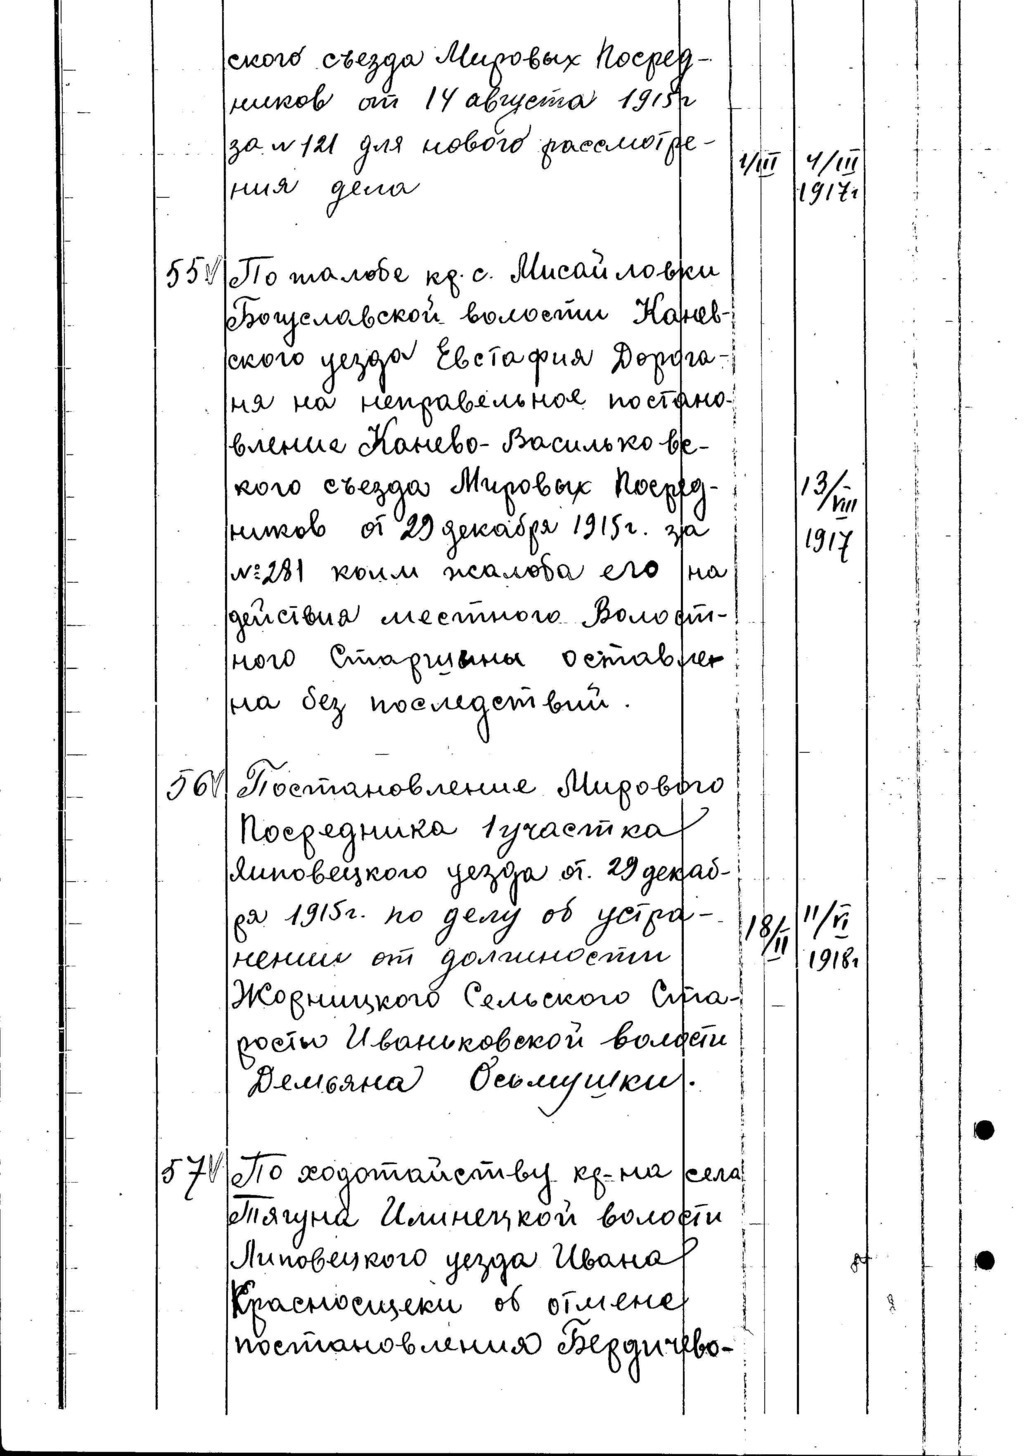 ского съезда Мировых Посред-
ников от 14 августа 1915г
за № 121 для нового рассмотре-
ния дела
1/III 4/III
1917г
55 По жалобе кр. с. Мисайловки
Богуславской волости Канев-
ского уезда Евстафия Дорога-
ня на неправельное постано-
вление Канево-Васильковс-
кого съезда Мировых Посред-
ников от 29 декабря 1915г. за
№ 281 коим жалоба его на
действия местного Волост-
ного Старшины оставле
на без последствий.
13/VIII
1917
56 Постановление Мирового
Посредника 1 участка
Липовецкого уезда от. 29 декаб-
ря 1915г. по делу об устра-
нении от должности
Жорницкого Сельского Ста-
росты Иваньковской волости
Демьяна Осьмушки.
18/II 11/VI
1918г
57 По ходотайству кр-на села
Тягуна Илинецкой волости
Липовецкого уезда Ивана
Красносщеки об отмене
постановления Бердичево-